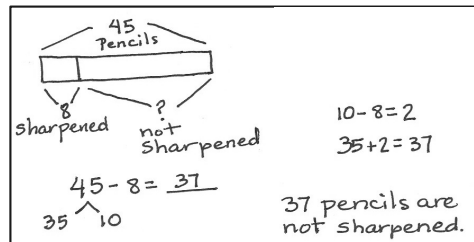 45
Pencils
8
sharpened
?
not
sharpened
10-8=2
35+2=37
45-8= 37
35 10
37 pencils are
not sharpened.